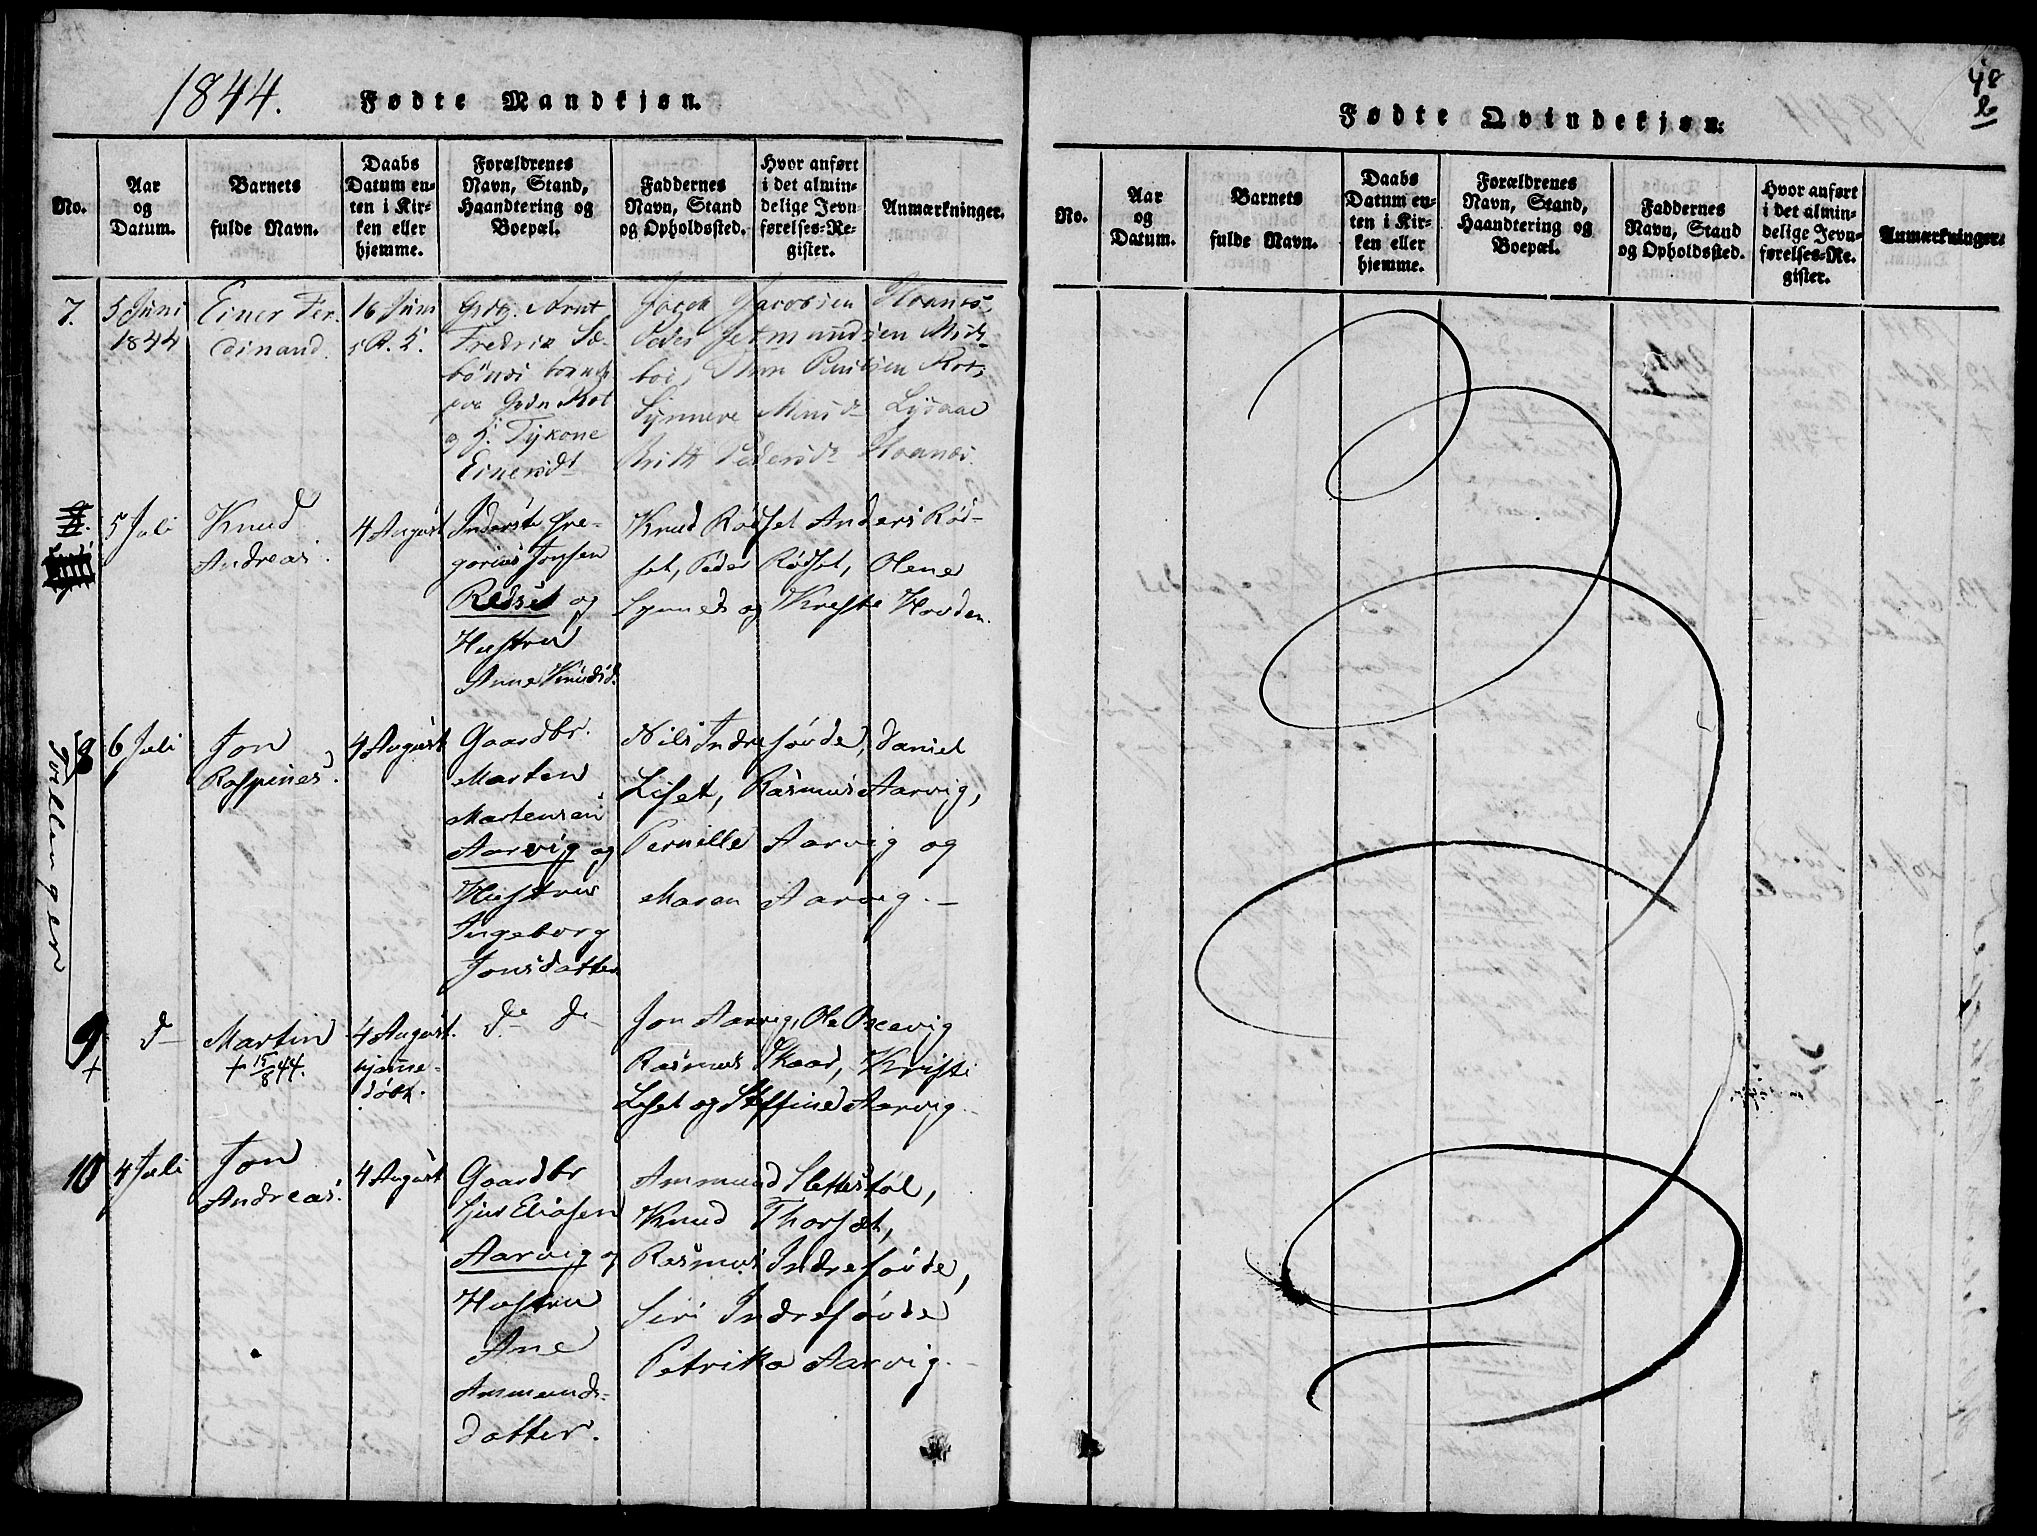 1844.
Fødte Mandkjøn.
No.
Aar
og
Datum.
Barnets
fulde Navn.
Daabs
Datum en-
ten i Kir-
ken eller
hjemme.
Forældrenes
Navn, Stand,
Haandtering og
Boepæl.
Faddernes
Navn, Stand
og Opholdssted.
Hvor anført
i det almin-
delige Jevn-
førelses-Re-
gister.
Anmærkninger.
7.
5 Juni
1844
Einer Fer-
dinand.
16 Juni
Arnt
Fredrik Sæ-
og Tykone
Einersdt
Jacob Jacobsen Hornes,
Peder Jetmundsen Mid-
boe, Rot,
Synneve Lysaae
Britt Pedersdt Hornæs.
5 Juli
Knud
Andreas.
4 August
Inderste Gre-
gorius
Redset og
Hustru
Anne Knudsd.
Knud Rødset Anders Rød-
set, Peder Rødset, Olene
Synnes og Kriste Hovden.
Tvillinger
8
6 Juli
Jon
Raspines.
4 August
Gaardbr.
Marten
Martensen
Aarvig og
Hustrue
Ingeborg
Jonsdatter
Nils Indresøvde, Daniel
Liset, Rasmus Aarvig,
Pernille Aarvig og
Maren Aarvig. –
9
+
d–
Martin
+ 15/8 44.
4 August.
hjemme-
døbt.
do do
Jon Aarvig, Ole
Rasmus Skaar, Kristi
Liset og Steffine Aarvig –
10
4 Juli
Jon
Andreas.
4 August
Gaardbr
Sjur Eliasen
Aarvig og
Hustru
Ane
Ammunds-
datter.
Ammund Slettestøl,
Knud Thorset,
Rasmus Indresøvde,
Siri Indresøvde
Petrika Aarvig. –
48
b
Fødte Qvindekjøn.
No.
Aar
og
Datum.
Barnets
fulde Navn.
Daabs
Datum en-
ten i Kir-
ken eller
hjemme.
Forældrenes
Navn, Stand,
Haandtering og
Boepæl.
Faddernes
Navn, Stand
og Opholdssted.
Hvor anført
i det almin-
delige Jevn-
førelses-Re-
gister.
Anmærkninger.